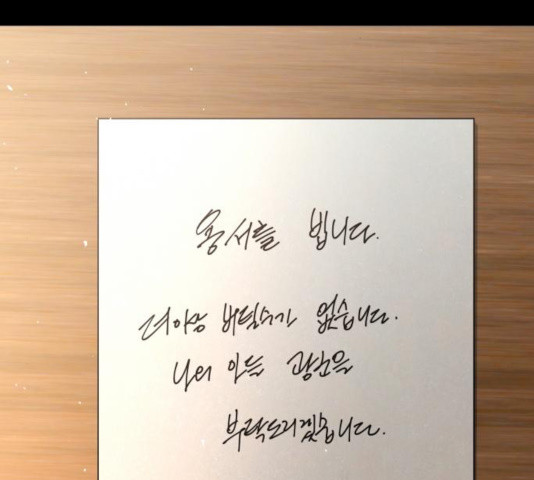 용서를 빕니다.
더이상 버틸수가 없습니다.
나의 아들 광순을
부탁드리겠습니다.